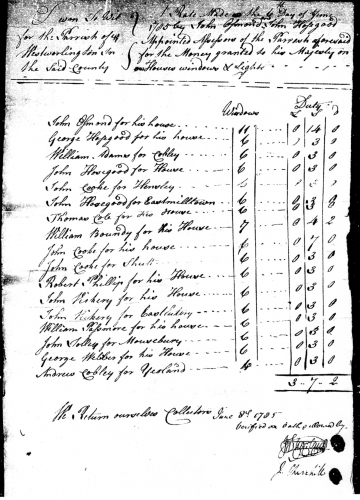 Devon To Wit
for the Parrish of
Westworlington In
the Said County
A Rate Made the 4 Day of June
1785 by John Osmond John Hosgood
Appointed Assessors of the Parrish aforesaid
for the Money granted to his Majesty on
Houses windows & Lights
Windows Duty
John Osmond for his house 11 0 14 0
George Hosgood for his house 6 3 0
William Adams for Cobley 6 0 3 0
John Hosegood for House 6 0 3 0
John Cooke for Hensley 6
John Hosegood for Eastmilltown 6 3
Thomas Cole for his House 6 0 3 0
William Boundy for his House 7 0 4 2
John Cooke for his house 0
John Cooke for 6 0 3 0
Robert Phillip for his House 6 0 3 0
John Vickery for his House 6 0 3 0
John Vickery for 6 0 3 0
William Passmore for his house 6 0 3 0
John Tolley for Mousebury 6 0 3 0
George Webber for his House 6 0 3 0
Andrew Cobley for Yeoland 0 3 0
3 - 7 - 2
We Return ourselves Collectors June 8th 1785
Verified on Oath & allowed by